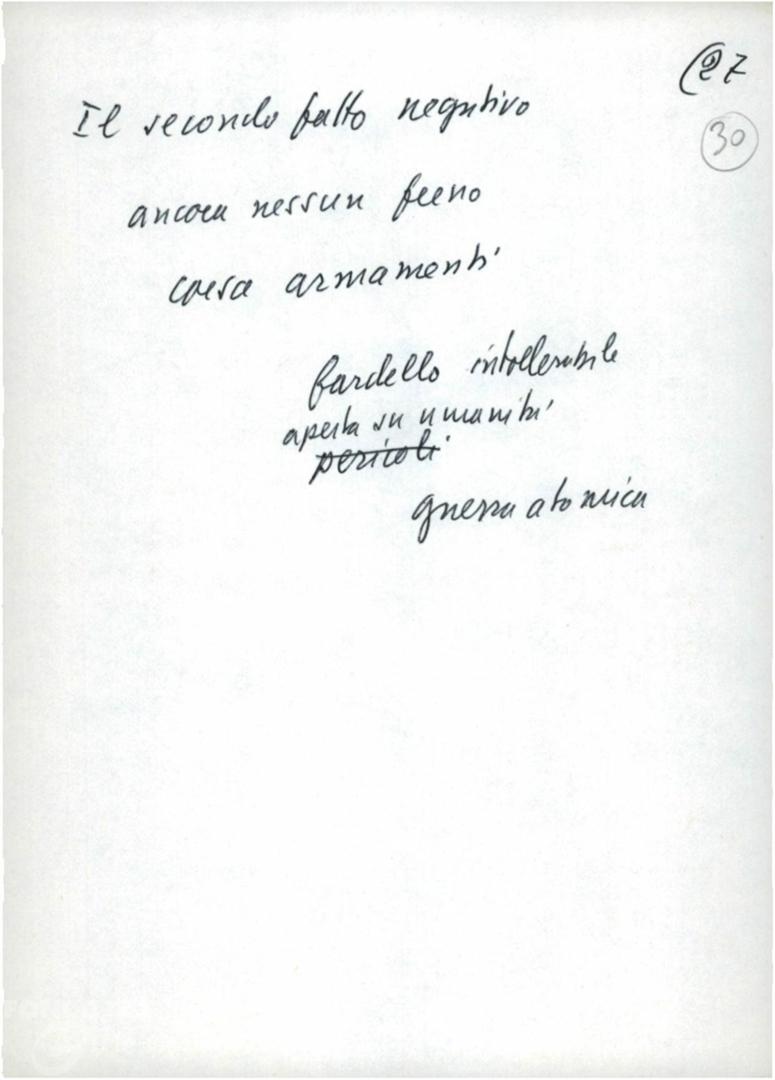 27
30
Il secondo fatto negativo
ancora nessun freno
corsa armamenti
fardello intollerabile
aperta su umanità
pericoli
guerra atomica